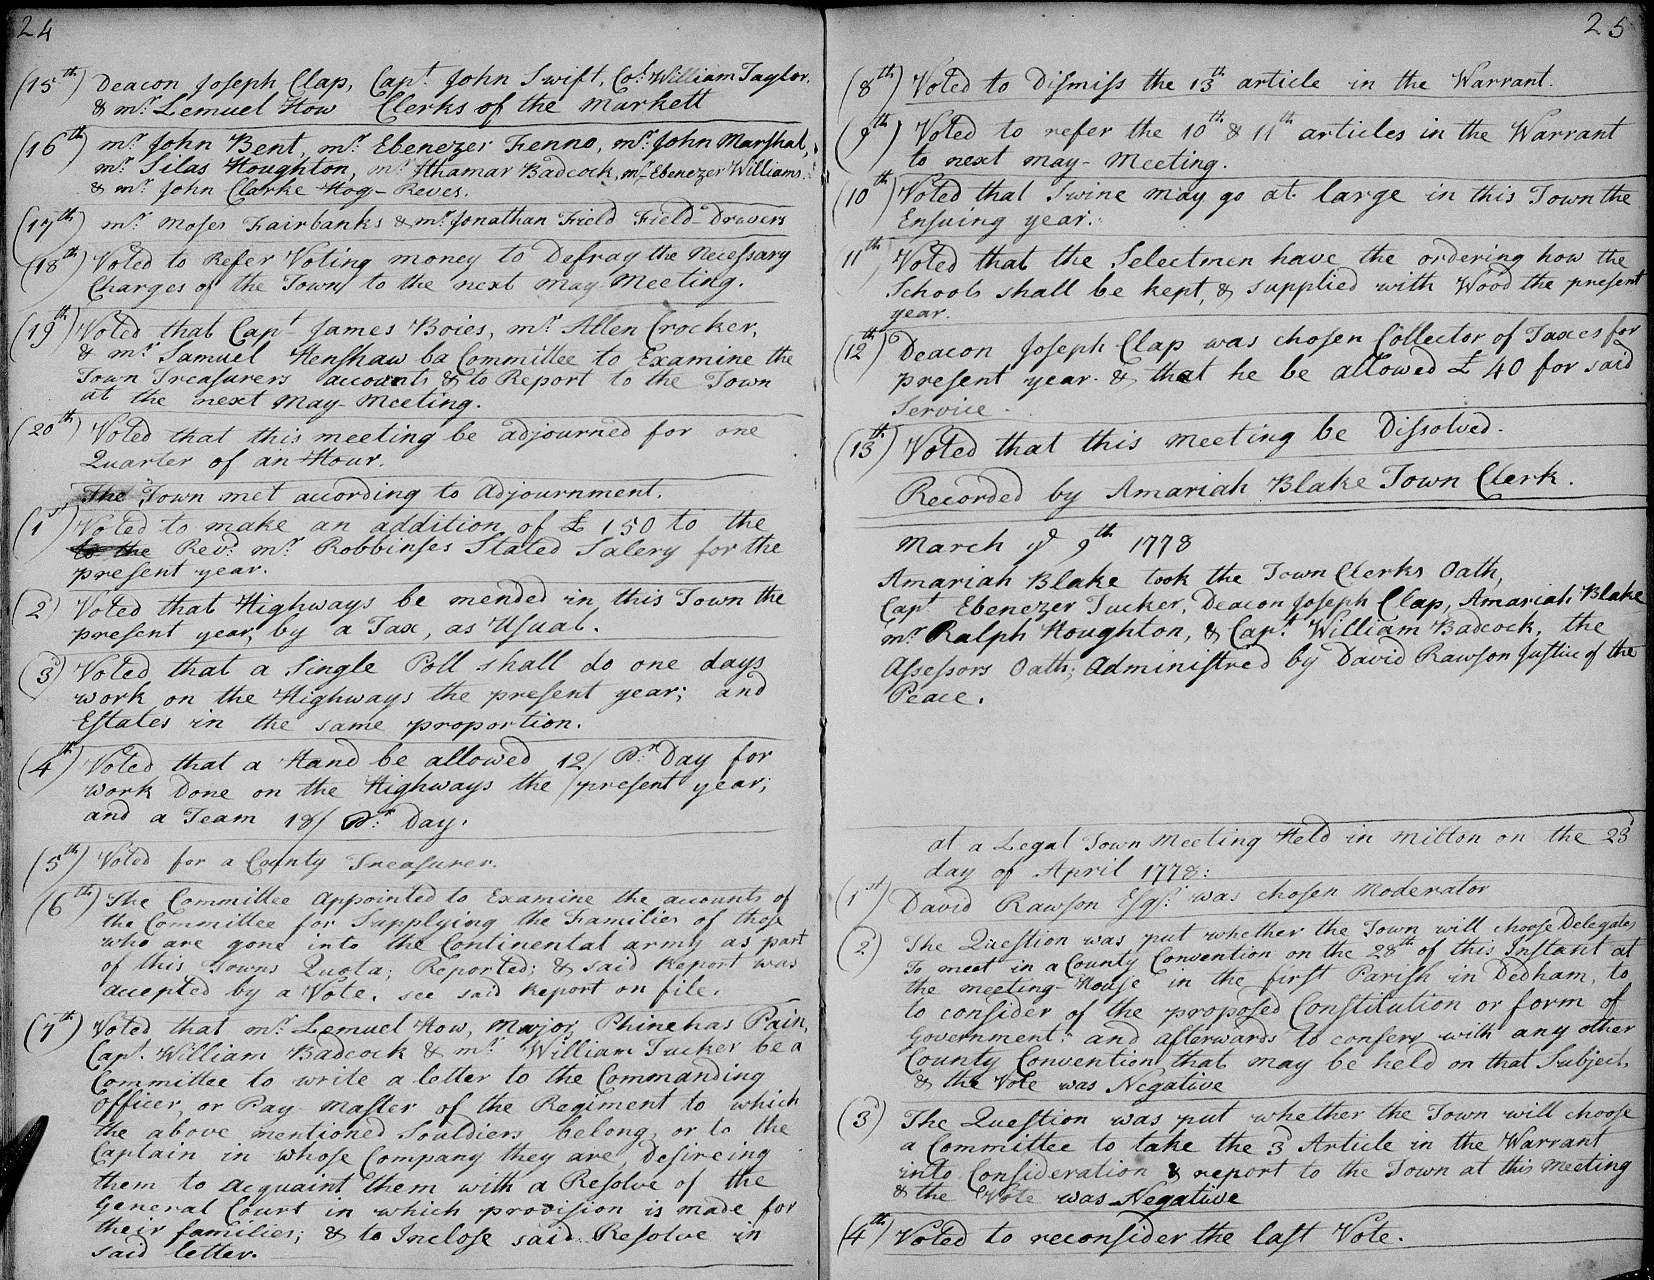 24
(15th) Deacon Joseph Clap, Capt. John Swift, Col. William Taylor,
& mr. Lemuel How Clerks of the Markett
(16th) mr. John Bent, mr. Ebenezer Fenno, mr. John Marshal,
mr. Silas Houghton, mr. Ithamar Badcock, mr. Ebenezer Williams
& mr. John Clarke Hog-Reves.
(17th) mr. Moses Fairbanks & mr. Jonathan Field Field-Drivers
(18th) Voted to Refer Voting money to Defray the Necessary
Charges of the Town to the next may Meeting.
(19th) Voted that Capt. James Boies, mr. Allen Crocker,
& mr. Samuel Henshaw be a Committee to Examine the
Town Treasurers accounts & to Report to the Town
at the next May-Meeting.
(20th) Voted that this meeting be adjourned for one
Quarter of an Hour.
The Town met acording to Adjournment.
(1st) Voted to make an addition of £ 150 to the
to the Revd. mr. Robbinses Stated Salery for the
present year.
(2d) Voted that Highways be mended in this Town the
present year, by a Tax, as Usual.
(3d) Voted that a Single Poll shall do one days
work on the Highways the present year; and
Estates in the same proportion.
(4th) Voted that a Hand be allowed 12/ Pr. Day for
work Done on the Highways the present year;
and a Team 18/ Pr. Day.
(5th) Voted for a County Treasurer.
(6th) The Committee appointed to Examine the acounts of
the Committee for Supplying the Families of those
who are gone into the Continental army as part
of this Towns Quota; Reported; & said Report was
accepted by a Vote. see said Report on file.
(7th) Voted that mr. Lemuel How, Major Phinehas Pain,
Capt. William Badcock & mr. William Tucker be a
Committee to write a letter to the Commanding
officer, or Pay-master of the Regiment to which
the above mentioned Souldiers belong, or to the
Captain in whose Company they are, Desireing
them to acquaint them with a Resolve of the
General Court in which provision is made for
their families; & to Inclose said Resolve in
said letter.
25
(8th) Voted to Dismiss the 13th article in the Warrant.
(9th) Voted to refer the 10th & 11th articles in the Warrant
to next may-Meeting.
(10th) Voted that Swine may go at large in this Town the
Ensuing year.
11th Voted that the Selectmen have the ordering how the
Schools shall be kept, & supplied with Wood the present
year.
(12th) Deacon Joseph Clap was chosen Collector of Taxes for
present year. & that he be allowed £ 40 for said
Service.
(13th) Voted that this meeting be Dissolved.
Recorded by Amariah Blake Town Clerk.
March ye 9th 1778
Amariah Blake took the Town Clerks Oath,
Capt. Ebenezer Tucker, Deacon Joseph Clap, Amariah Blake
mr. Ralph Houghton, & Capt. William Badcock, the
Assessors Oath; Administred by David Rawson Justice of the
Peace.
at a Legal Town Meeting Held in Milton on the 23d
day of April 1778:
(1st) David Rawson Esqr. was chosen Moderator
(2) The Question was put whether the Town will choose Delegates
To meet in a County Convention on the 28th of this Instant at
the meeting-House in the first Parish in Dedham, to
to consider of the proposed Constitution or form of
Government: and afterwards to confer with any other
County Convention that may be held on that Subject,
& the Vote was Negative
(3d) The Question was put whether the Town will choose
a Committee to take the 3d Article in the Warrant
into Consideration & report to the Town at this Meeting
& the Vote was Negative
(4th) Voted to reconsider the last Vote.